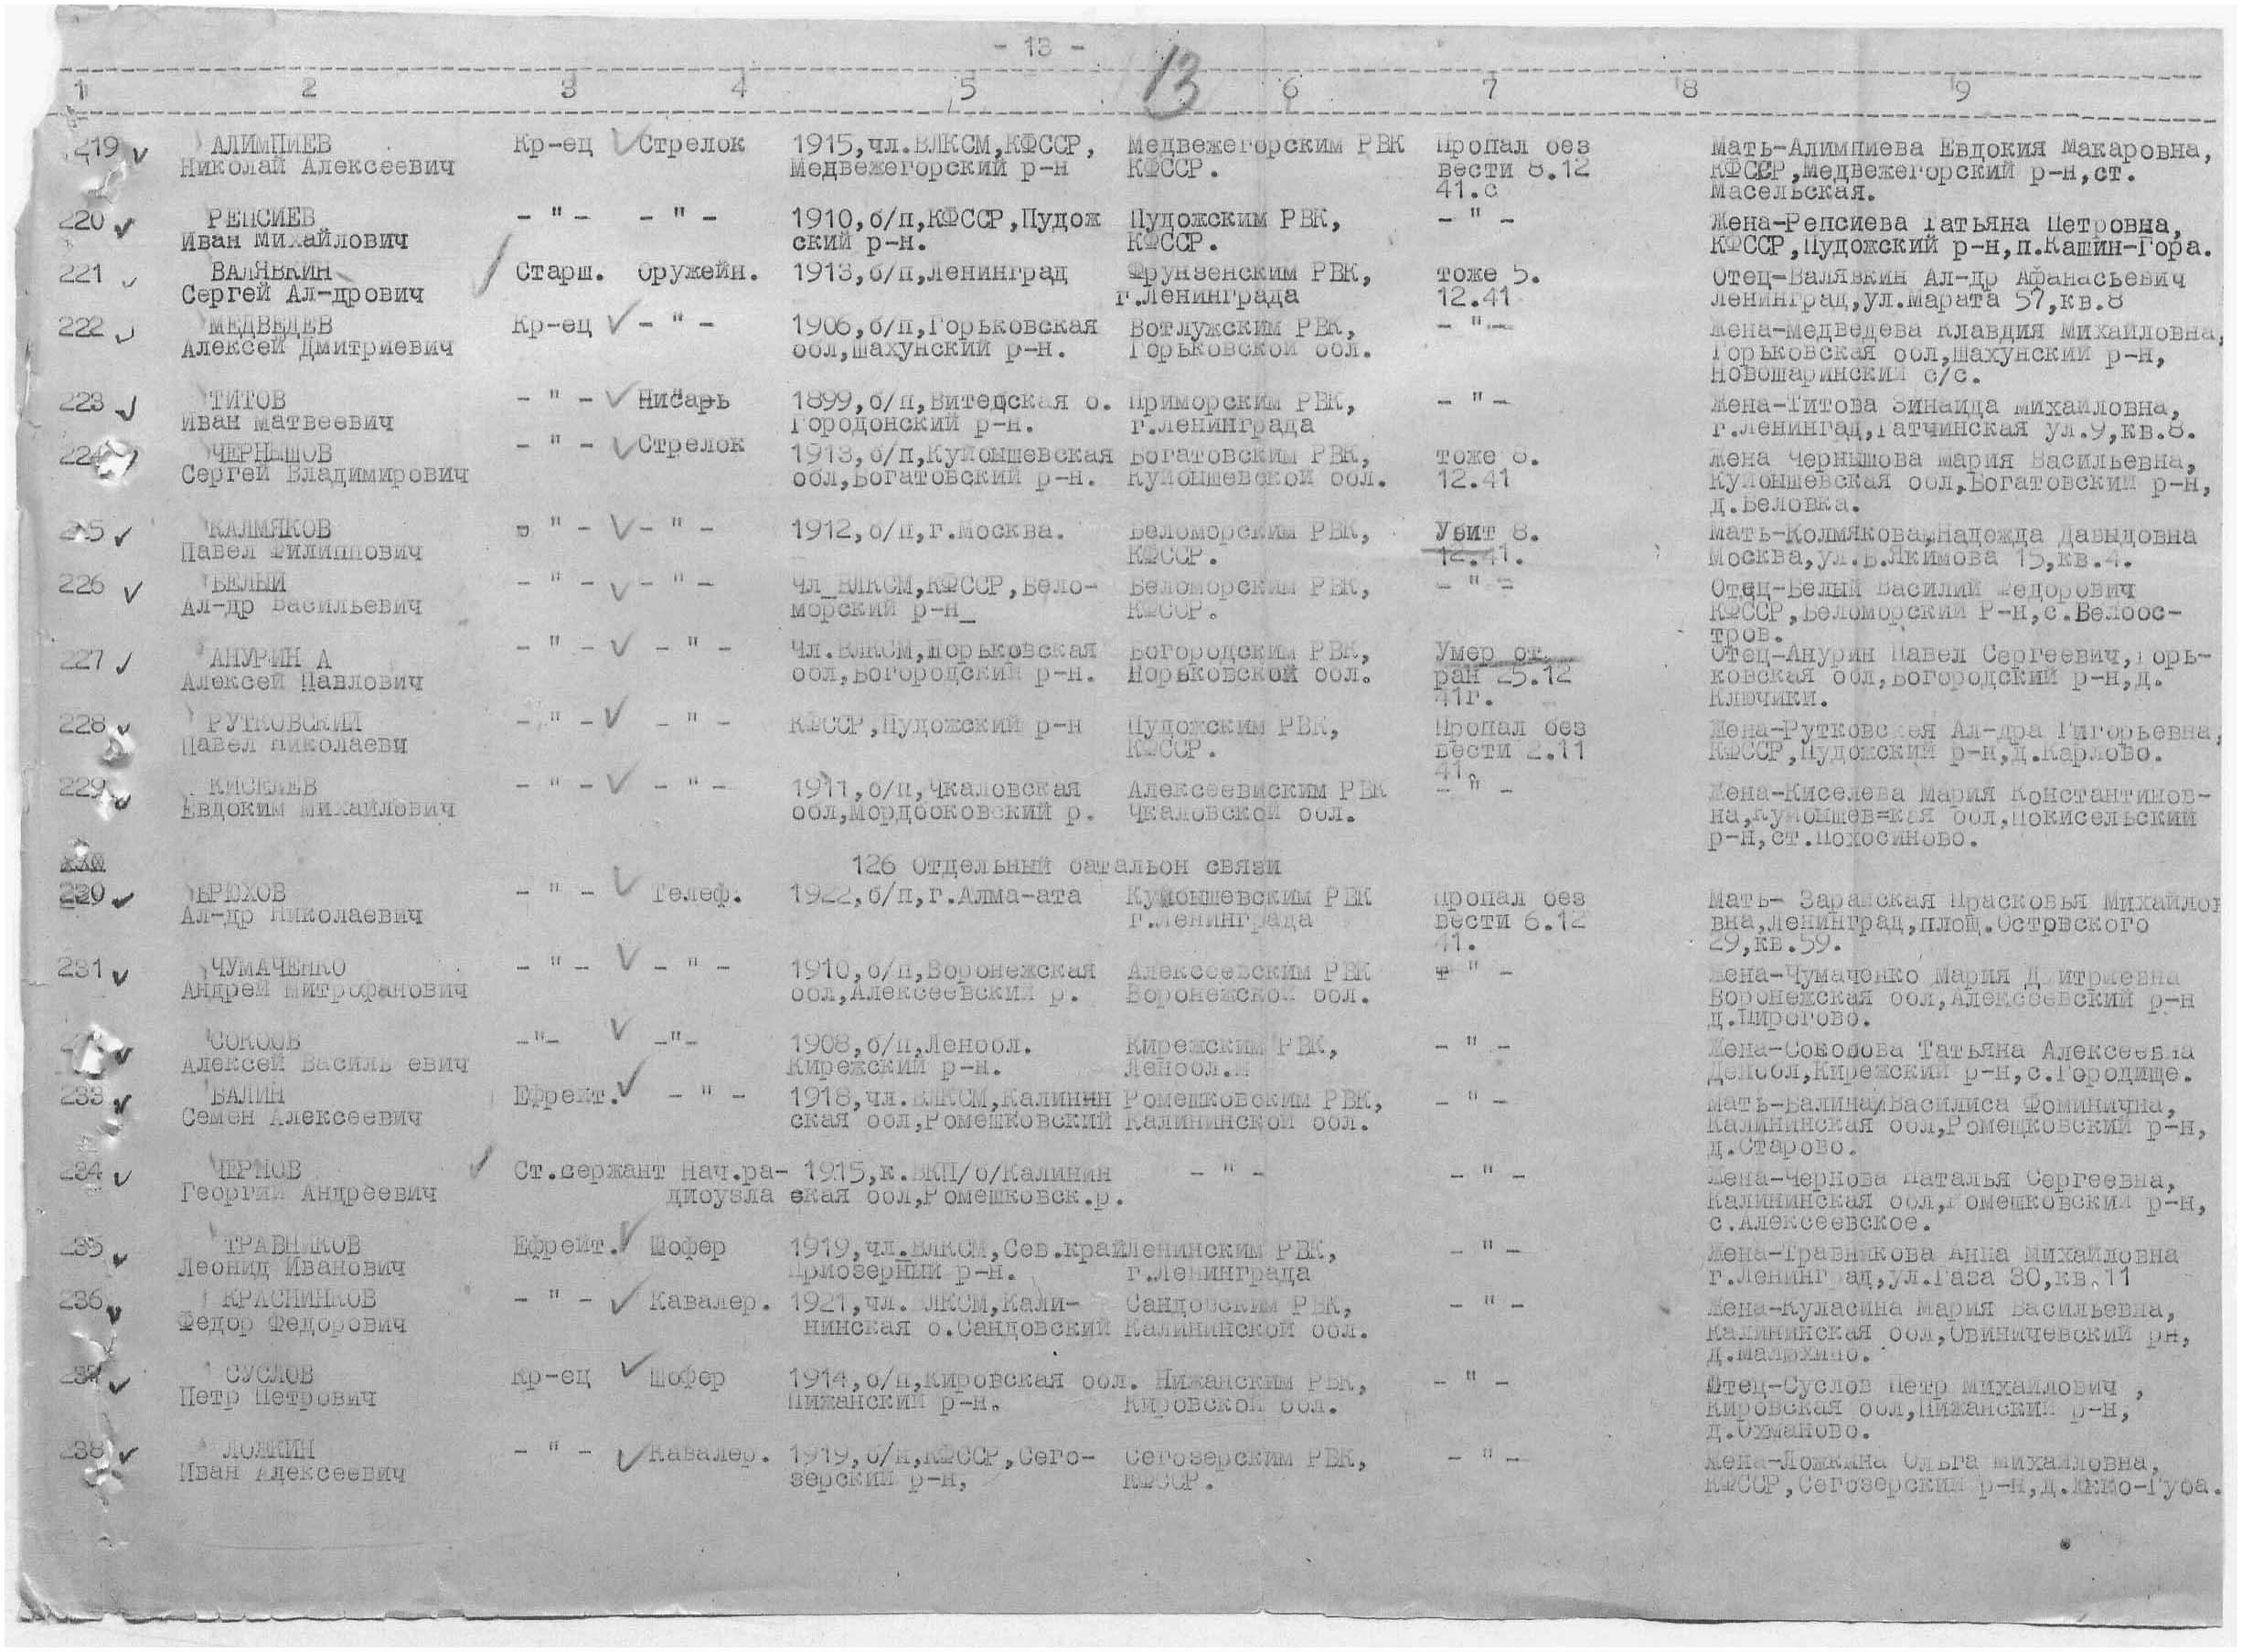 - 13 -
13
1 2 3 4 5 6 7 8 9
219 АЛИМПИЕВ Кр-ец Стрелок 1915,чл.ВЛКСМ,КФССР, Медвежегорским РВК Пропал без Мать-Алимпиева Евдокия Макаровна,
Николай Алексеевич Медвежегорский р-н КФССР. вести 8.12 КФССР,Медвежегорский р-н,ст.
41.с Масельская.
220 РЕПСИЕВ - " - - " - 1910,б/п,КФССР,Пудож Пудожским РВК, - " - Жена-Репсиева Татьяна Петровна,
Иван Михайлович ский р-н. КФССР. КФССР,Пудожский р-н,п.Кашин-Гора.
221 ВАЛЯВКИН Старш. Оружейн. 1913,б/п,Ленинград Фрунзенским РВК, тоже 5. Отец-Валявкин Ал-др Афанасьевич
Сергей Ал-дрович г.Ленинграда 12.41 Ленинград,ул.Марата 57,кв.8
222 МЕДВЕДЕВ Кр-ец - " - 1906,б/п,Горьковская Вотлужским РВК, - " - Жена-Медведева Клавдия Михайловна,
Алексей Дмитриевич обл,Шахунский р-н. Горьковской обл. Горьковская обл,Шахунский р-н,
Новошаринский с/с.
223 ТИТОВ - " - Писарь 1899,б/п,Витебская о. Приморским РВК, - " - Жена-Титова Зинаида Михайловна,
Иван Матвеевич Городонский р-н. г.Ленинграда г.Ленингад,Гатчинская ул.9,кв.8.
224 ЧЕРНЫШОВ - " - Стрелок 1913,б/п,Куйбышевская Богатовским РВК, тоже 6. Жена Чернышова Мария Васильевна,
Сергей Владимирович обл,Богатовский р-н. Куйбышевской обл. 12.41 Куйбышевская обл,Богатовский р-н,
д.Беловка.
225 КАЛМЯКОВ " - - " - 1912,б/п,г.Москва. Беломорским РВК, Убит 8. Мать-Колмякова,Надежда Давыдовна
Павел Филиппович КФССР. 12.41. Москва,ул.Б.Якимова 15,кв.4.
226 БЕЛЫЙ - " - - " - Чл_ВЛКСМ,КФССР,Бело- Беломорским РВК, - " - Отец-Белый Василий Федорович
Ал-др Васильевич морский р-н_ КФССР. КФССР,Беломорский Р-н,с.Белоос-
тров.
227 АНУРИН А - " - - " - Чл.ВЛКСМ,Порьковская Богородским РВК, Умер от Отец-Анурин Павел Сергеевич,Горь-
Алексей Павлович обл,Богородский р-н. Норьковской обл. ран 25.12 ковская обл,Богородский р-н,д.
41г. Ключики.
228 РУТКОВСКИЙ - " - - " - КФССР,Пудожский р-н Пудожским РВК, Пропал без Жена-Рутковская Ал-дра Гигорьевна,
Павел Николаеви КФССР. вести 2.11 КФССР,Пудожский р-н,д.Карлово.
41.
229 КИСЕЛЕВ - " - - " - 1911,б/п,Чкаловская Алексеевиским РВК - " - Жена-Киселева Мария Константинов-
Евдоким Михайлович обл,Мордбоковский р. Чкаловской обл. на,Куйбышев=кая обл,Покисельский
р-н,ст.Похосиново.
126 Отдельный батальон связи
230 БРЮХОВ - " - Телеф. 1922,б/п,г.Алма-ата Куйбышевским РВК Пропал без Мать- Зарайская Прасковья Михайлов
Ал-др Николаевич г.Ленинграда вести 6.12 вна,Ленинград,площ.Остревского
41. 29,кв.59.
231 ЧУМАЧЕНКО - " - - " - 1910,б/п,Воронежская Алексеевским РВК " - Жена-Чумаченко Мария Дмитриевна
Андрей Митрофанович обл,Алексеевский р. Воронежской обл. Воронежская обл,Алексеевский р-н
д.Пирогово.
СОКООВ -"- -"- 1908,б/п,Леноол. Кирежским РВК, - " - Жена-Соколова Татьяна Алексеевна
Алексей Василь евич Кирежский р-н. Леноол. Леноол,Кирежский р-н,с.Городище.
233 ВАЛИН Ефрейт. - " - 1918,чл.ВЛКСМ,Калинин Ромешковским РВК, - " - Мать-Валина,Василиса Фоминична,
Семен Алексеевич ская обл,Ромешковский Калининской обл. Калининская обл,Ромешковский р-н,
д.Старово.
234 ЧЕРНОВ Ст.сержант Нач.ра- 1915,к.ВКП/б/Калинин - " - - " - Жена-Чернова Наталья Сергеевна,
Георгий Андреевич диоузла ская обл,Ромешковск.р. Калининская обл,Ромешковский р-н,
с.Алексеевское.
235 ТРАВНИКОВ Ефрейт. Шофер 1919,чл.ВЛКСМ,Сев.край Ленинским РВК, - " - Жена-Травникова Анна Михайловна
Леонид Иванович Приозерный р-н. г.Ленинграда г.Ленинград,ул.Газа 30,кв.11
236 КРАСНИКОВ - " - Кавалер. 1921,чл.ВЛКСМ,Кали- Сандовским РВК, - " - Жена-Куласина Мария Васильевна,
Федор Федорович нинская о.Сандовский Калининской обл. Калининская обл,Овиничевский рн,
д.Малюхино.
237 СУСЛОВ Кр-ец Шофер 1914,б/п,Кировская обл. Пижанским РВК, - " - Отец-Суслов Петр Михайлович ,
Петр Петрович Пижанский р-н. Кировской обл. Кировская обл,Пижанский р-н,
д.Охманово.
238 ЛОЖКИН - " - Кавалер. 1919,б/п,КФССР,Сего- Сегозерским РВК, - " - Жена-Ложкина Ольга Михайловна,
Иван Алексеевич зерский р-н, КФССР. КФССР,Сегозерский р-н,